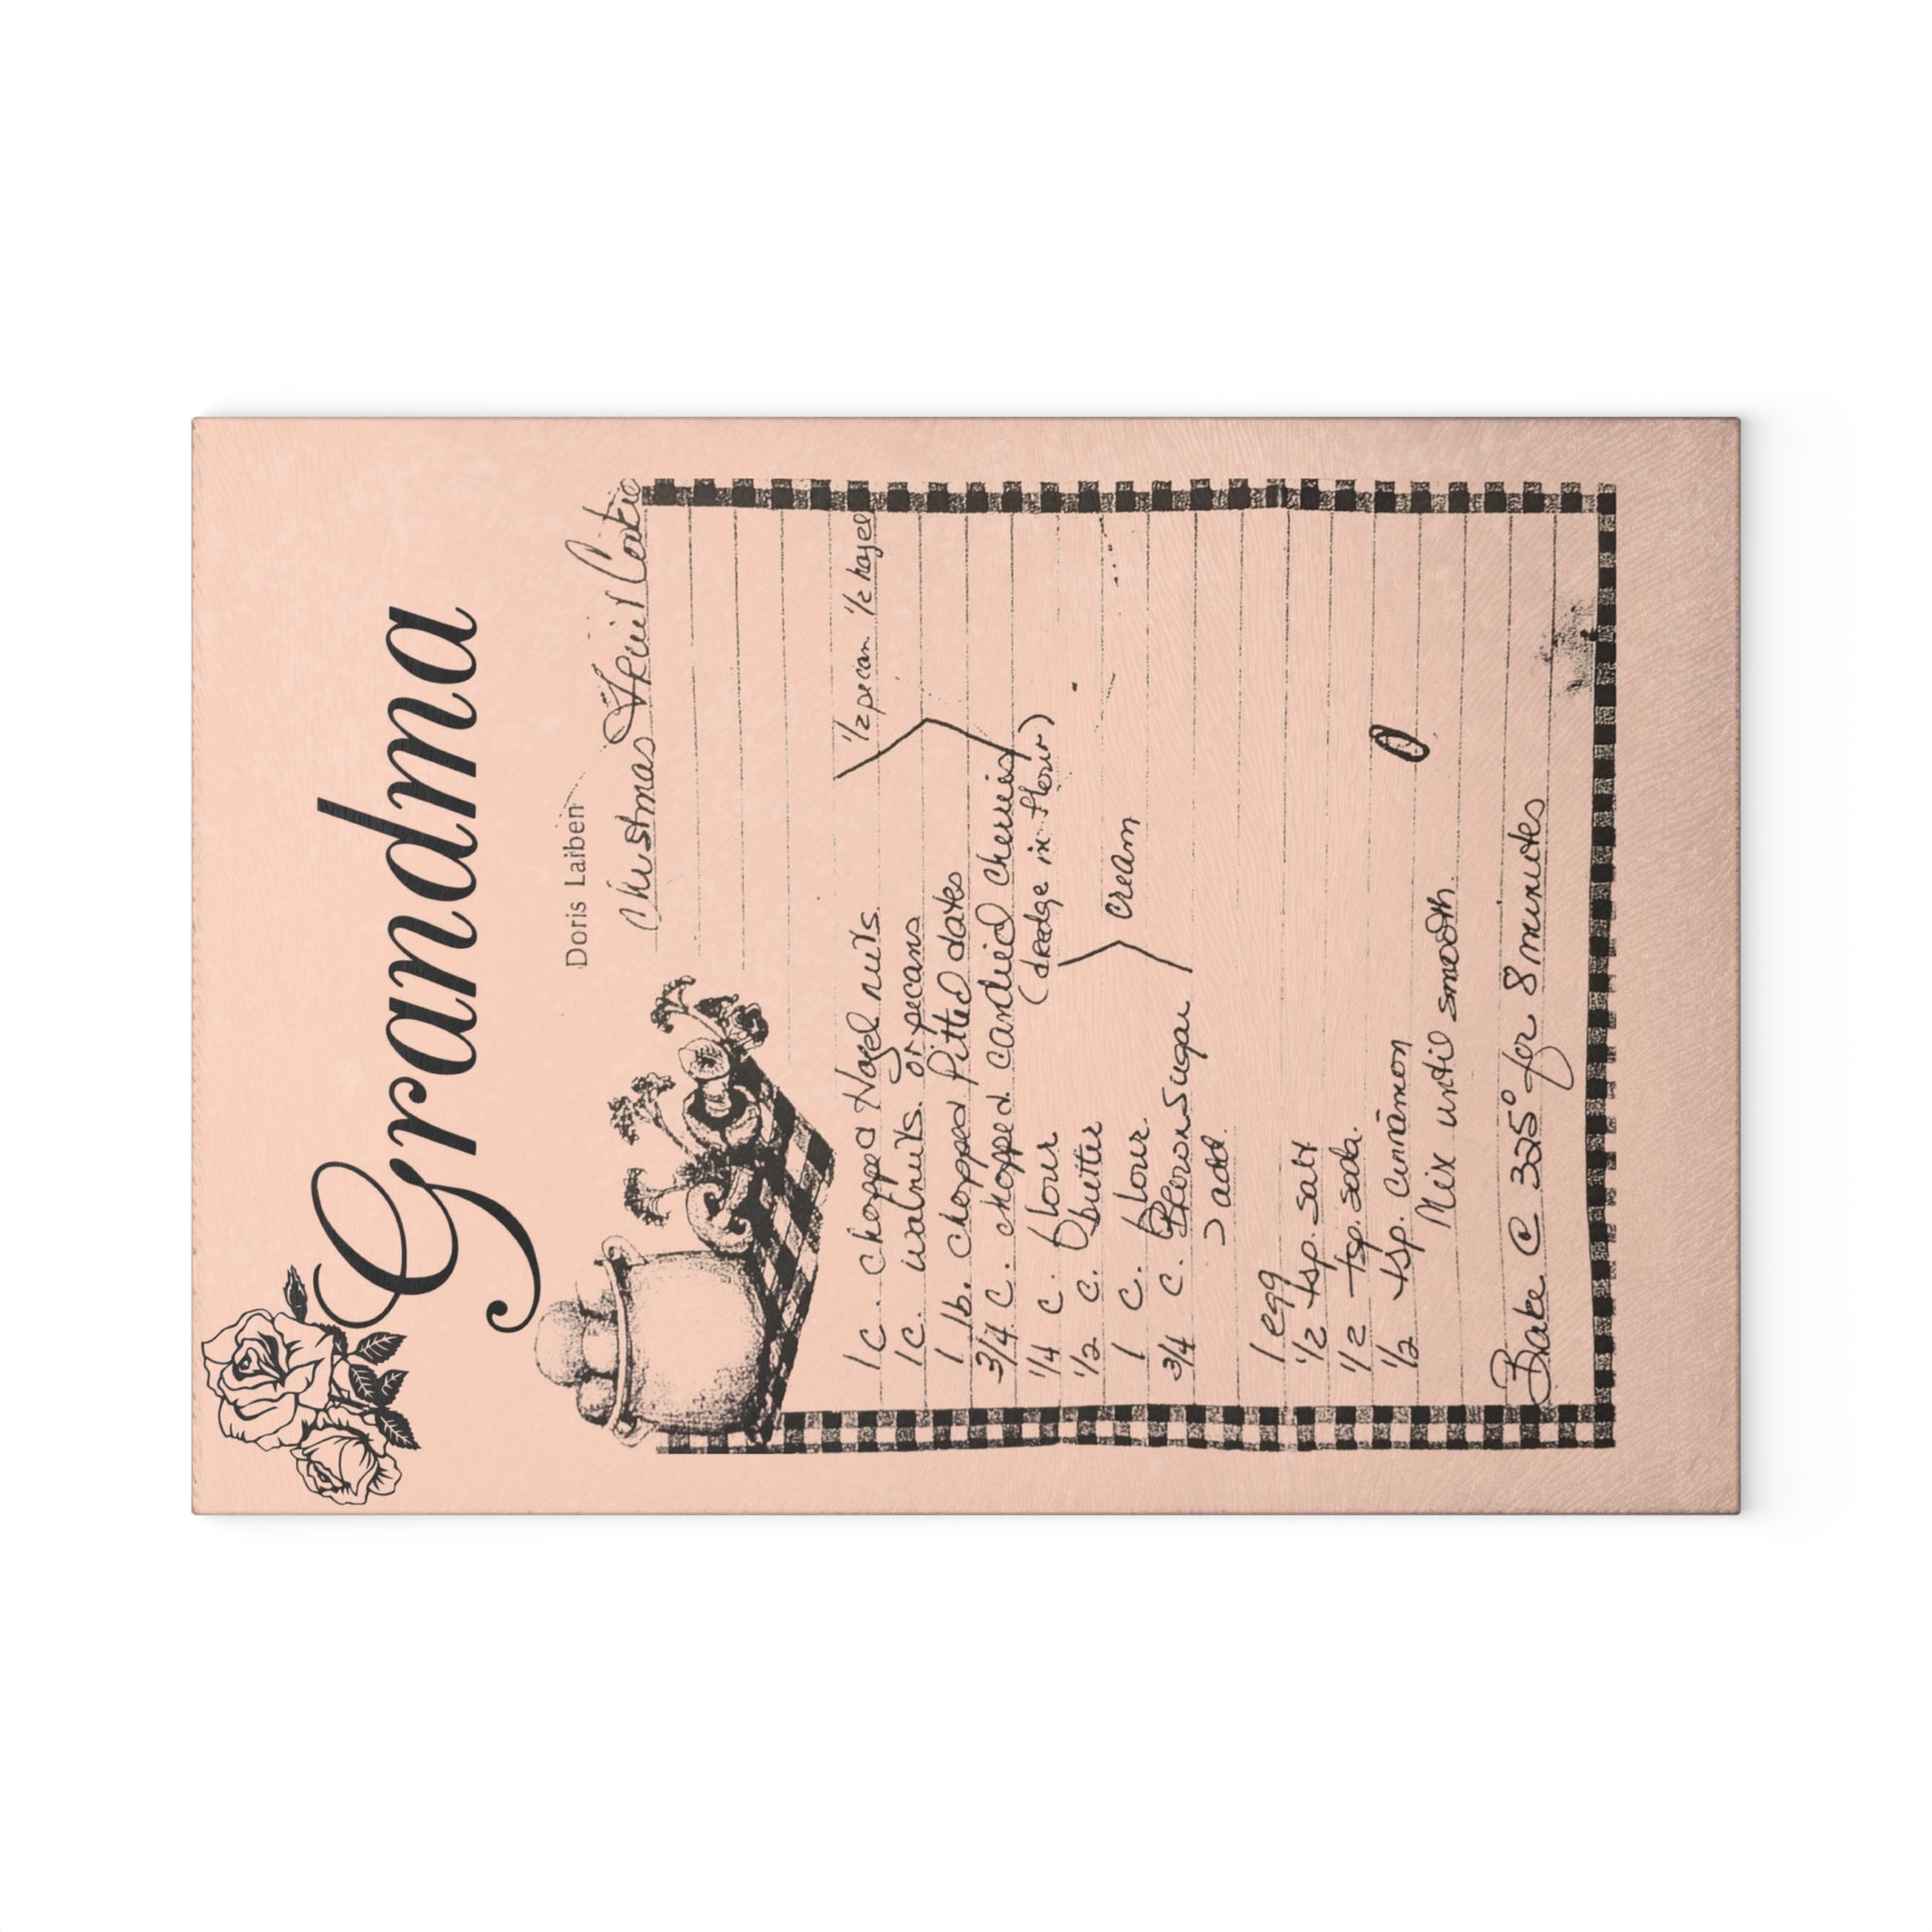 Grandma
Doris Laiben
Christmas Fruit Cookie
1 c. chopped Hazel nuts. 1/2 pecan 1/2 hazel
1 c. walnuts. or pecans
1 lb. chopped Pitted dates
3/4 c. chopped candied cherries
1/4 c. flour (dredge in flour)
1/2 c. butter
1 c. flour. cream
3/4 c. Brown Sugar
add.
1 egg
1/2 tsp. salt
1/2 tsp. soda.
1/2 tsp. cinnamon
Mix until smooth.
Bake @ 325° for 8 minutes